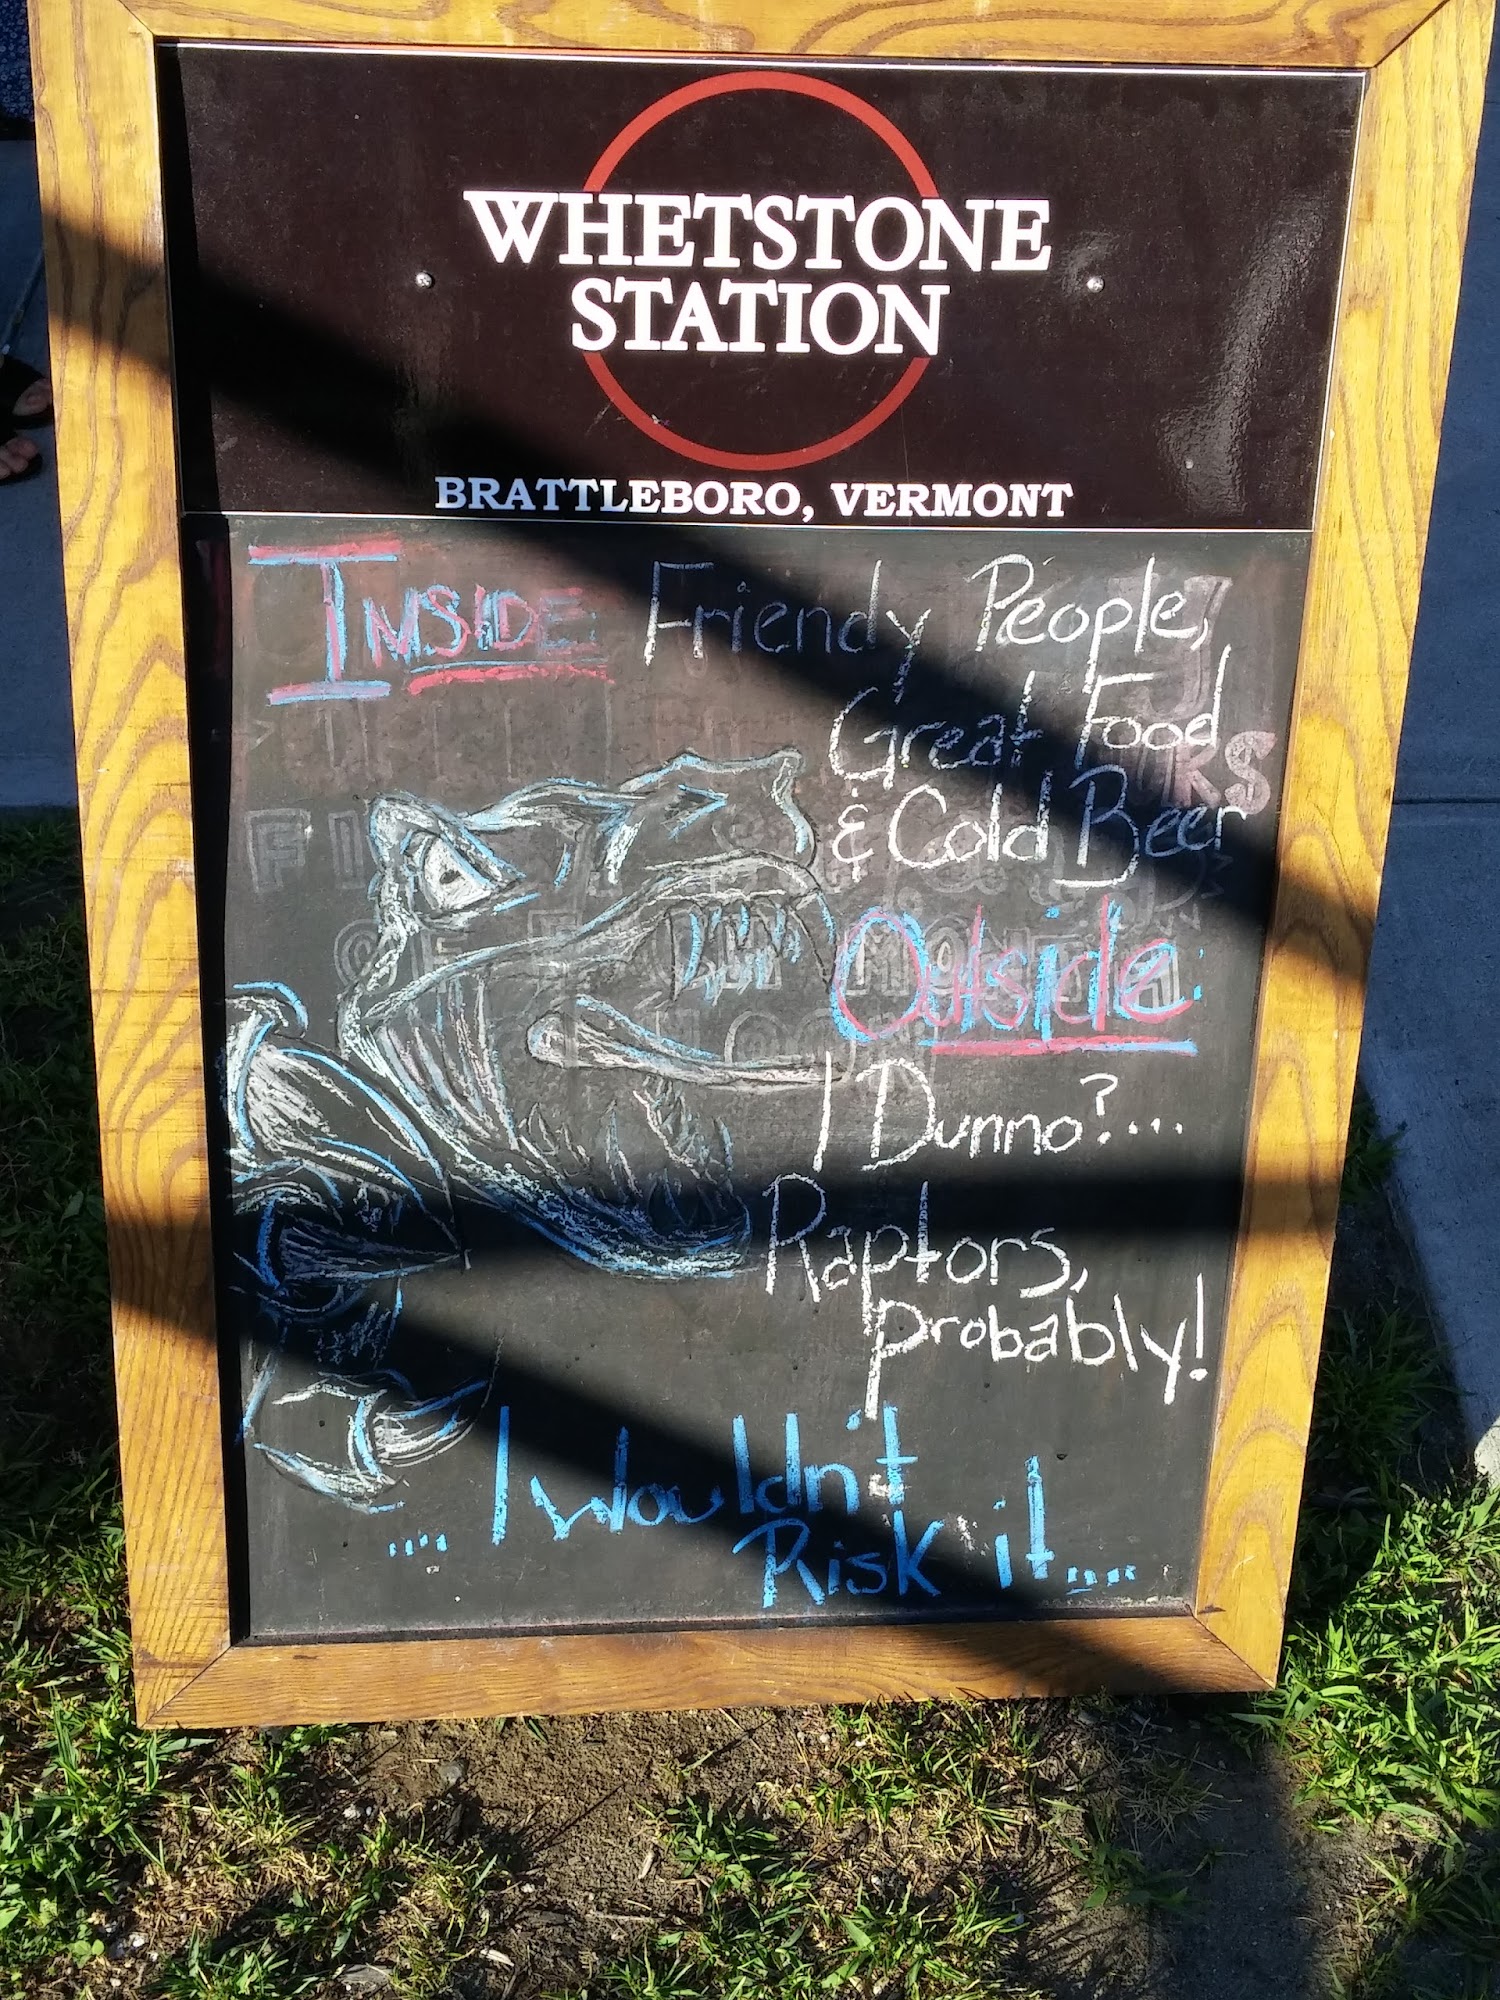 WHETSTONE
STATION
BRATTLEBORO, VERMONT
INSIDE Friendy People,
Great Food
& Cold Beer
Outside:
I Dunno?....
Raptors,
probably!
.... I Wouldn't
Risk it....